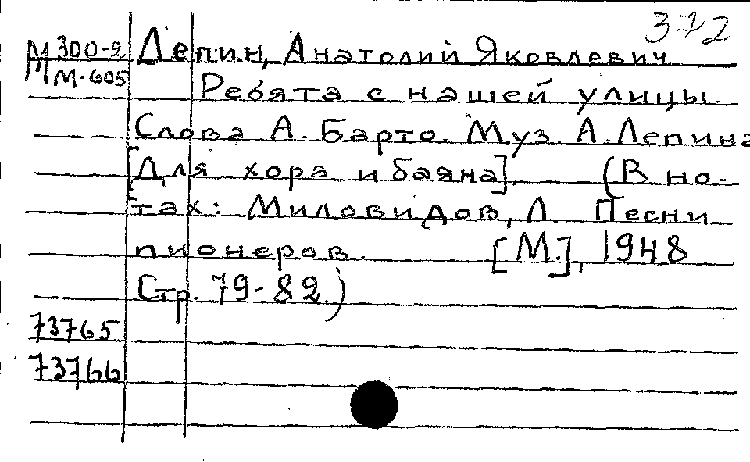 372
М 300-2 Лепин, Анатолий Яковлевич
М-605 Ребята с нашей улицы.
Слова А. Барто. Муз. А. Лепина
[Для хора и баяна]. (В но-
тах: Миловидов, Л. Песни
пионеров. [М.], 1948
Стр. 79-82)
73765
73766